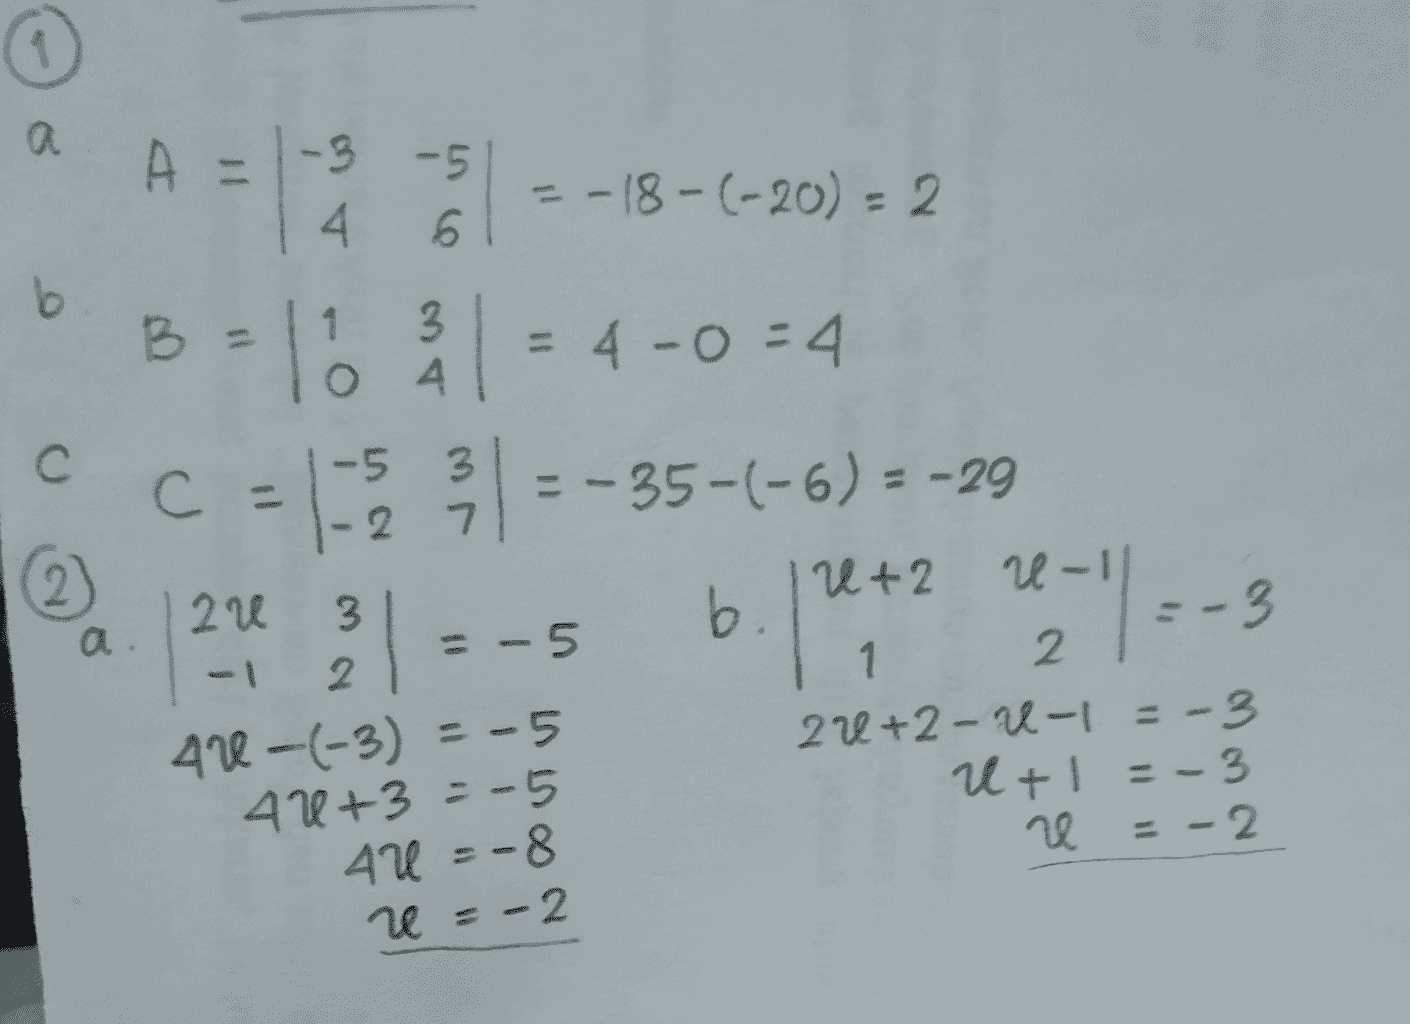 1
a A = | -3 -5 |
| 4 6 | = -18 - (-20) = 2
b B = | 1 3 |
| 0 4 | = 4 - 0 = 4
c C = | -5 3 |
| -2 7 | = -35 - (-6) = -29
2
a. | 2x 3 |
| -1 2 | = -5
4x - (-3) = -5
4x + 3 = -5
4x = -8
x = -2
b. | x+2 x-1 |
| 1 2 | = -3
2x + 2 - x - 1 = -3
x + 1 = -3
x = -2